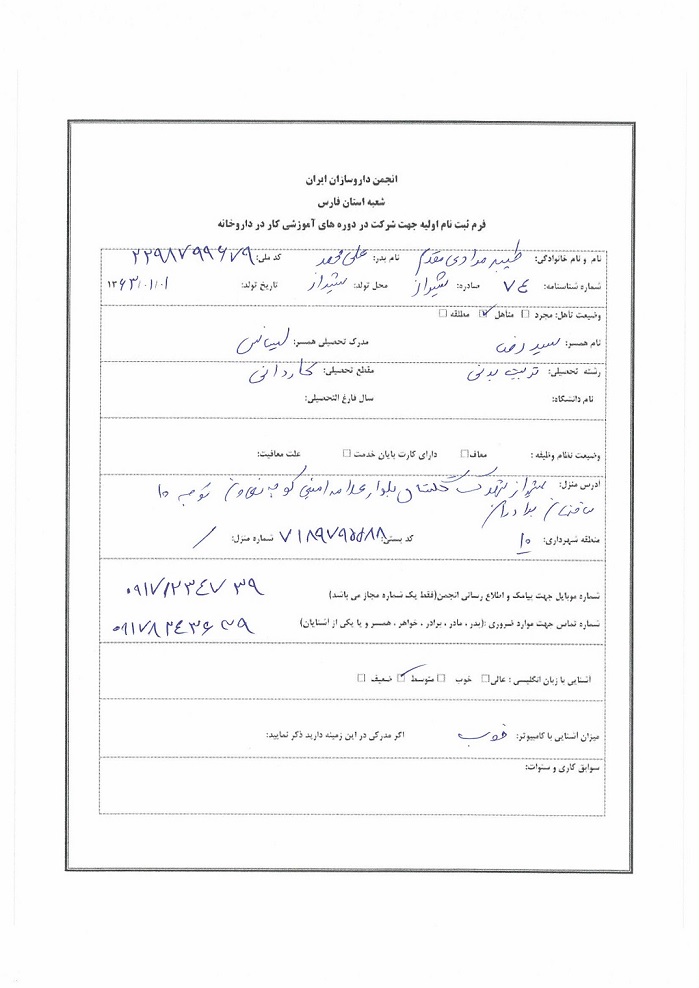 انجمن داروسازان ایران
شعبه استان فارس
فرم ثبت نام اولیه جهت شرکت در دوره های آموزشی کار در داروخانه
نام و نام خانوادگی: طیبه مرادی مقدم نام پدر: علی محمد کد ملی: ۲۲۹۸۷۹۹۶۷۹
شماره شناسنامه: ۷۴ صادره: شیراز محل تولد: شیراز تاریخ تولد: ۱۳۶۳/۰۱/۰۱
وضیعت تاهل: مجرد ☐ متأهل ☑ مطلقه ☐
نام همسر: سید رضا مدرک تحصیلی همسر: لیسانس
رشته تحصیلی: تربیت بدنی مقطع تحصیلی: کاردانی
نام دانشگاه: سال فارغ التحصیلی:
وضیعت نظام وظیفه : معاف☐ دارای کارت پایان خدمت ☐ علت معافیت:
آدرس منزل: شیراز شهرک گلستان بلوار علامه امینی کوچه ۱۰
منطقه شهرداری: ۱۰ کد پستی: شماره منزل: /
شماره موبایل جهت پیامک و اطلاع رسانی انجمن(فقط یک شماره مجاز می باشد)
شماره تماس جهت موارد ضروری :(پدر ، مادر ، برادر ، خواهر ، همسر و یا یکی از آشنایان) ۰۹۱۷۸۲۴۳۶۳۹
آشنایی با زبان انگلیسی : عالی☐ خوب ☐ متوسط ☑ ضعیف ☐
میزان آشنایی با کامپیوتر: خوب اگر مدرکی در این زمینه دارید ذکر نمایید:
سوابق کاری و سنوات: